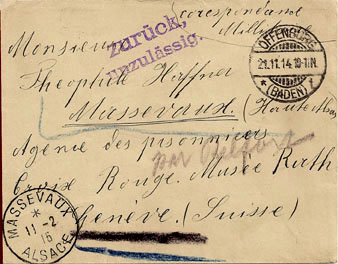 Correspondance
Militaire
Monsieur
zurück,
unzulässig.
OFFENBURG
21.11.14.10-11N.
* (BADEN) 1
Théophile Haffner
Massevaux (Haute Alsace)
Agence des prisonniers
par Belfort
Croix Rouge. Musée Rath
Genève. (Suisse)
MASSEVAUX
*
11-2
16
ALSACE